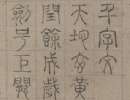 千字文
天地玄黃
閏餘成歲
劍号巨闕